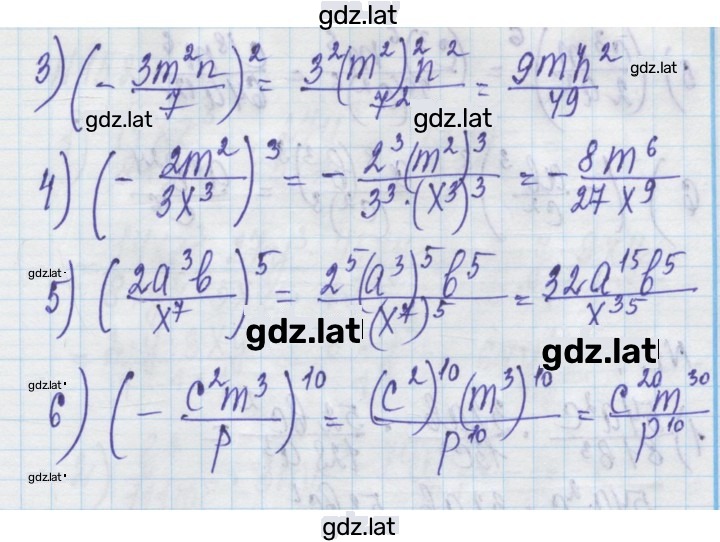 gdz.lat
3) (- 3m²n / 7)² = 3²(m²)²n² / 7² = 9m⁴n² / 49
gdz.lat
gdz.lat gdz.lat
4) (- 2m² / 3x³)³ = - 2³·(m²)³ / 3³·(x³)³ = - 8m⁶ / 27x⁹
gdz.lat
5) (2a³b / x⁷)⁵ = 2⁵(a³)⁵b⁵ / (x⁷)⁵ = 32a¹⁵b⁵ / x³⁵
gdz.lat
gdz.lat
gdz.lat
6) (- c²m³ / p)¹⁰ = (c²)¹⁰(m³)¹⁰ / p¹⁰ = c²⁰m³⁰ / p¹⁰
gdz.lat
gdz.lat